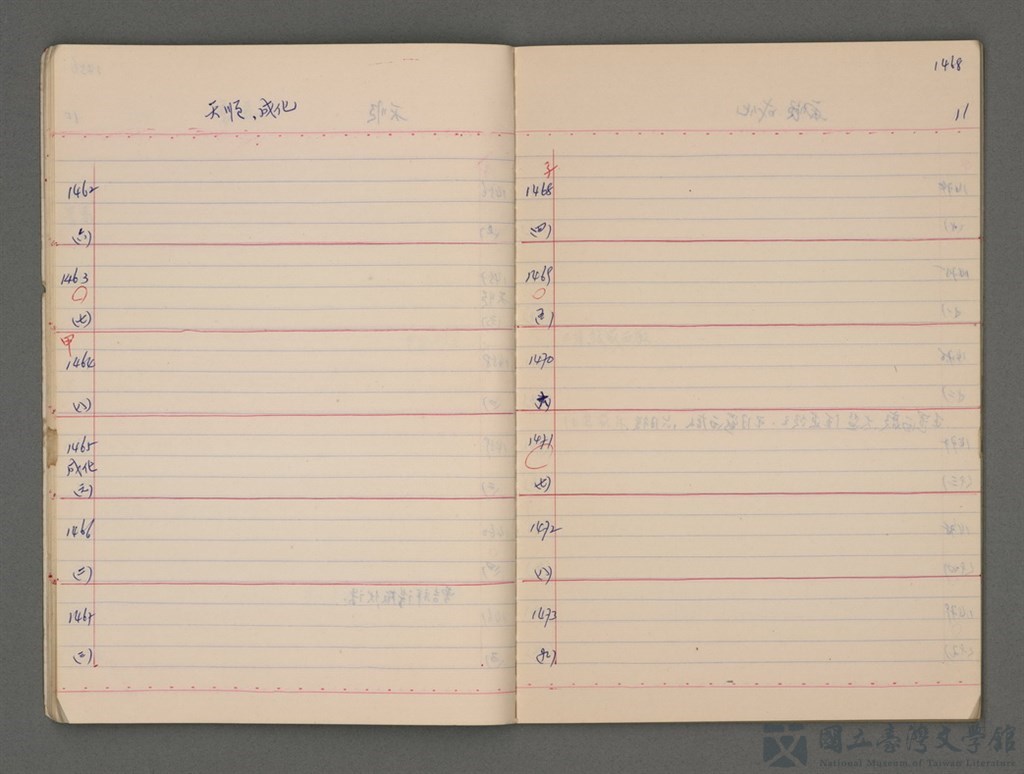 天順、成化
1462
(六)
1463
(七)
甲
1464
(八)
1465
成化
(元)
1466
(二)
1467
(三)
1468
11
子
1468
(四)
1469
(五)
1470
(六)
1471
(七)
1472
(八)
1473
(九)
國立臺灣文學館
National Museum of Taiwan Literature